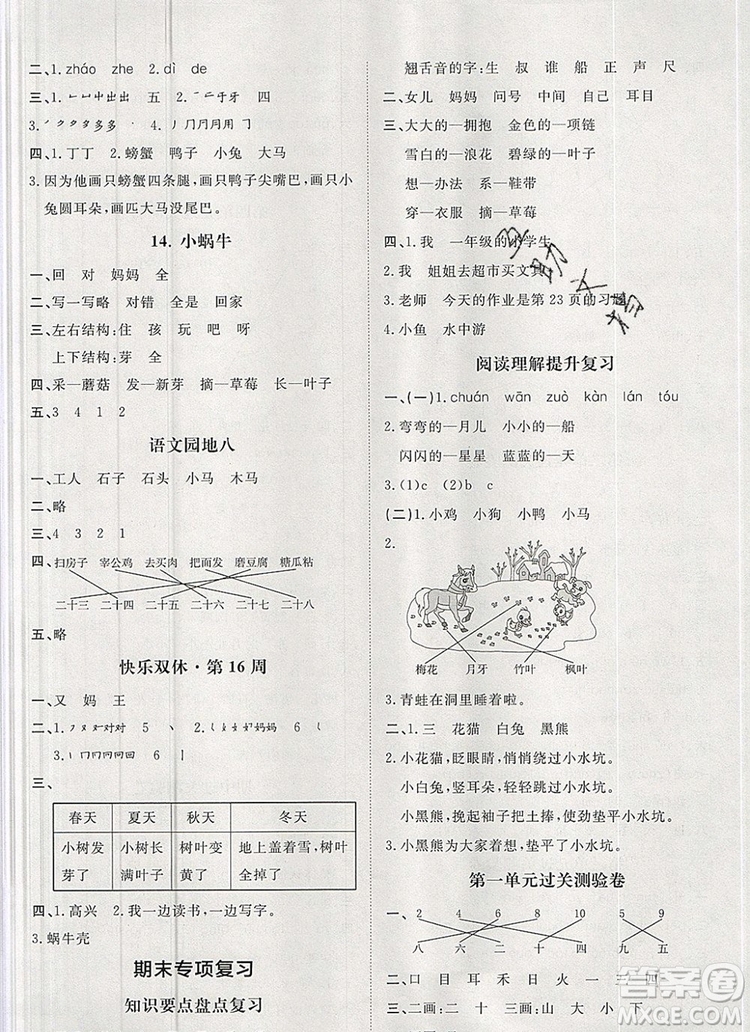 二、1. zháo zhe 2. dì de
中出出 五 四
四、1. 丁丁 2. 螃蟹 鸭子 小兔 大马
3. 因为他画只螃蟹四条腿,画只鸭子尖嘴巴,画只小
兔圆耳朵,画匹大马没尾巴。
14. 小蜗牛
一、回 对 妈妈 全
二、写一写略 对错 全是 回家
三、左右结构:住 孩 玩 吧 呀
上下结构:芽 全
四、采—蘑菇 发—新芽 摘—草莓 长—叶子
五、3 4 1 2
语文园地八
一、工人 石子 石头 小马 木马
二、略
三、4 3 2 1
四、扫房子 宰公鸡 去买肉 把面发 磨豆腐 糖瓜粘
二十三 二十四 二十五 二十六 二十七 二十八
五、略
快乐双休·第 16 周
一、又 妈 王
三、
春天 夏天 秋天 冬天
小树发 小树叶 小树叶变 地上盖着雪,树叶
芽了 满叶子 黄了 全掉了
四、1. 高兴 2. 我一边读书,一边写字。
3. 蜗牛壳
期末专项复习
知识要点盘点复习
翘舌音的字:生 叔 谁 船 正 声 尺
二、女儿 妈妈 问号 中间 自己 耳目
三、大大的—拥抱 金色的—项链
雪白的—浪花 碧绿的—叶子
想—办法 系—鞋带
穿—衣服 摘—草莓
四、1. 我 一年级的小学生
2. 我 姐姐去超市买文具
3. 老师 今天的作业是第 23 页的习题
4. 小鱼 水中游
阅读理解提升复习
一、(一)1. chuán wān zuò kàn lán tóu
2. 弯弯的—月儿 小小的—船
闪闪的—星星 蓝蓝的—天
3. (1)c (2)b c
(二)1. 小鸡 小狗 小鸭 小马
2.
梅花 月牙 竹叶 枫叶
3. 青蛙在洞里睡着啦。
二、1. 三 花猫 白兔 黑熊
2. 小花猫,眨眼睛,悄悄绕过小水坑。
小白兔,竖耳朵,轻轻跳过小水坑。
小黑熊,挽起袖子把土捧,使劲垫平小水坑。
3. 小黑熊为大家着想,垫平了小水坑。
第一单元过关测验卷
一、 2 4 6 8 10 5 9
八 六 二 十 四 九 五
二、口 目 耳 禾 日 火 一 三 四
三、二画:二 十 三画:山 大 小 下
答案圈
MXQE.COM